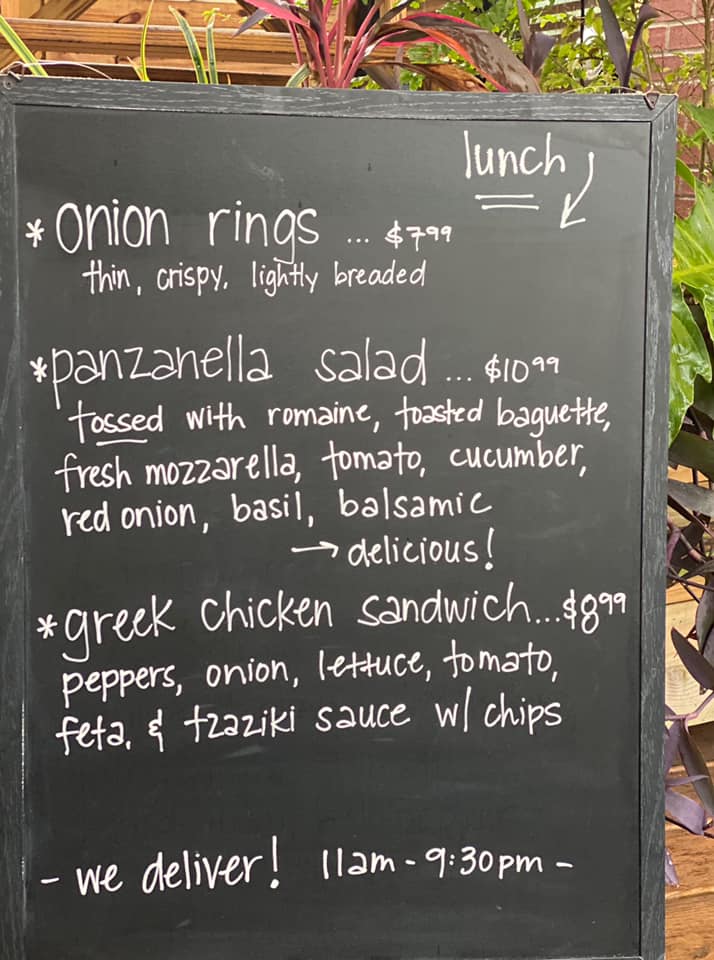 lunch
*onion rings ... $7.99
thin, crispy, lightly breaded
*panzanella salad ... $10.99
tossed with romaine, toasted baguette,
fresh mozzarella, tomato, cucumber,
red onion, basil, balsamic
→ delicious!
*greek chicken sandwich...$8.99
peppers, onion, lettuce, tomato,
feta, & tzaziki sauce w/ chips
- we deliver! 11am - 9:30pm -